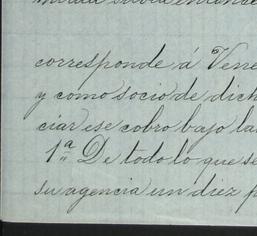 corresponde á Vene
y como socio de dich
ciar ese cobro bajo la
1ª De todo lo que se
su agencia un diez p